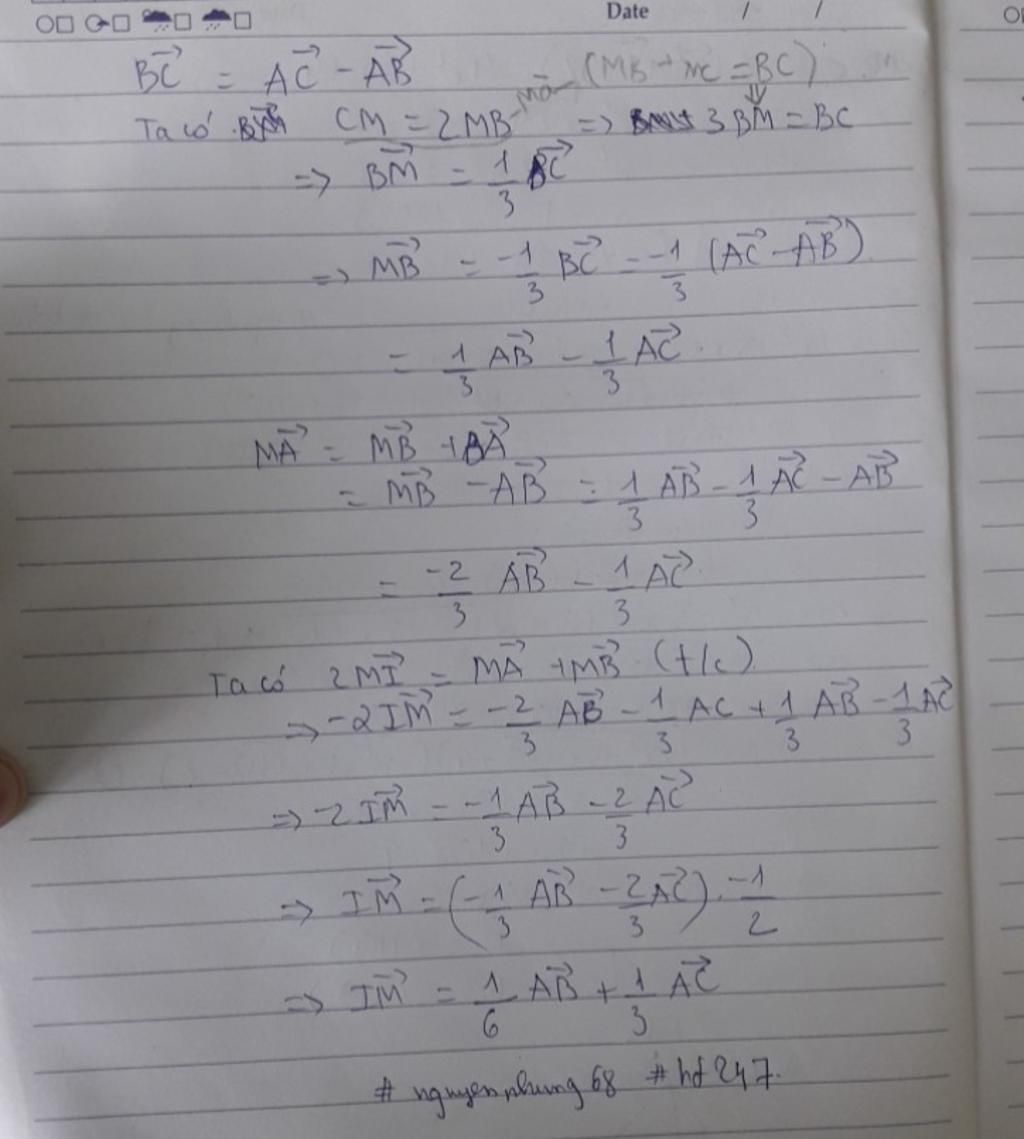 Date / /
BC⃗ = AC⃗ - AB⃗ (MB + MC = BC)
Ta có CM = 2MB mà => 3BM = BC
=> BM⃗ = 1/3 BC⃗
=> MB⃗ = -1/3 BC⃗ = -1/3 (AC⃗ - AB⃗)
= 1/3 AB⃗ - 1/3 AC⃗
MA⃗ = MB⃗ + BA⃗
= MB⃗ - AB⃗ = 1/3 AB⃗ - 1/3 AC⃗ - AB⃗
= -2/3 AB⃗ - 1/3 AC⃗
Ta có 2MI⃗ = MA⃗ + MB⃗ (t/c)
=> -2IM⃗ = -2/3 AB⃗ - 1/3 AC + 1/3 AB⃗ - 1/3 AC⃗
=> -2IM⃗ = -1/3 AB⃗ - 2/3 AC⃗
=> IM⃗ = (-1/3 AB⃗ - 2/3 AC⃗) . -1/2
=> IM⃗ = 1/6 AB⃗ + 1/3 AC⃗
# nguyenphung68 # hd247.